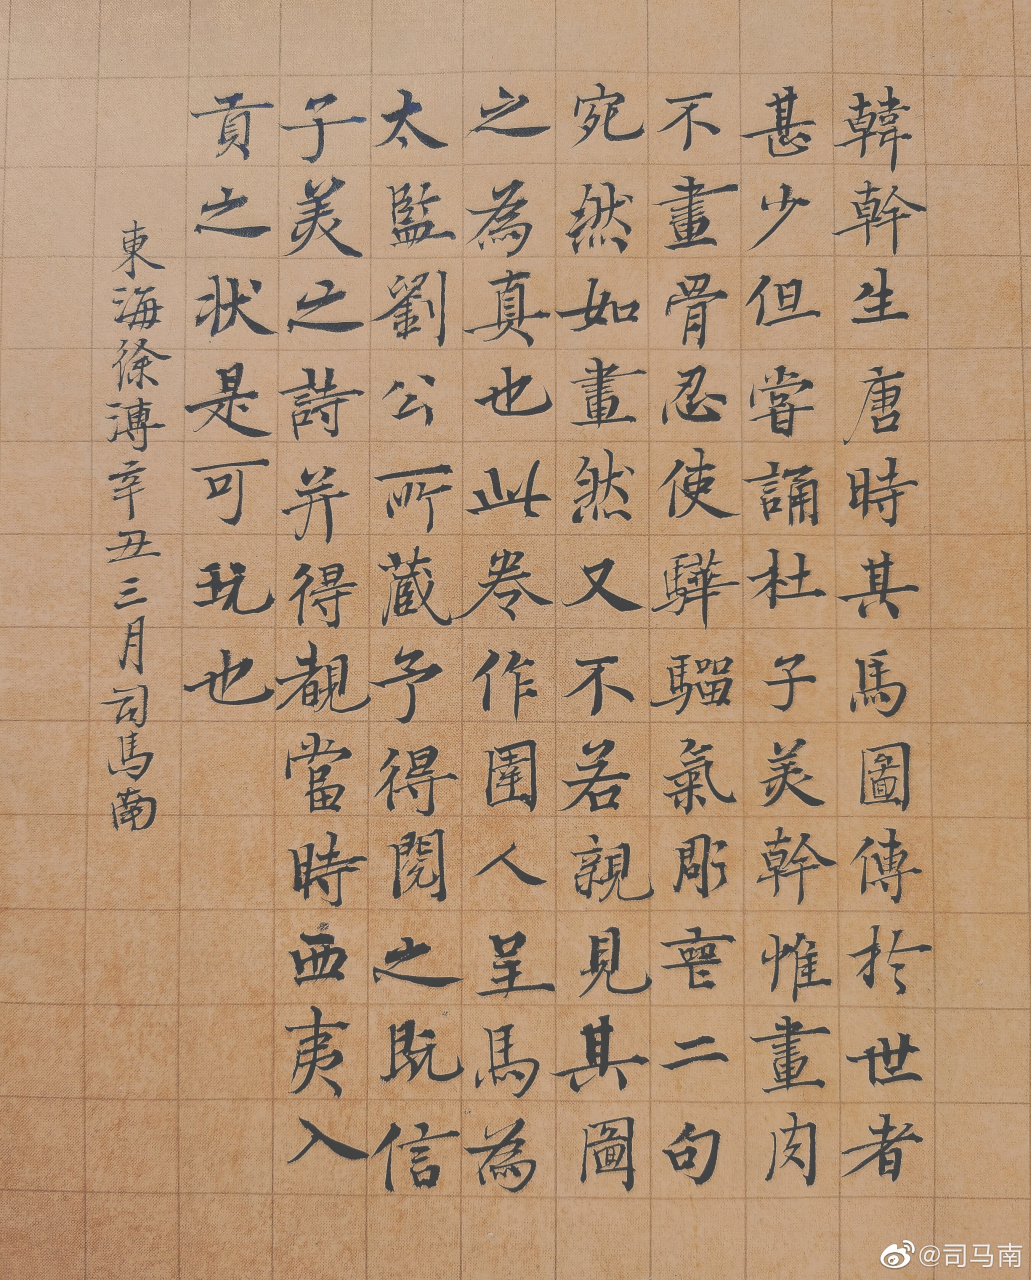 韓幹生唐時其馬圖傳於世者
甚少但嘗誦杜子美幹惟畫肉
不畫骨忍使驊騮氣彫喪二句
宛然如畫然又不若親見其圖
之為真也此卷作圉人呈馬為
太監劉公所蔵予得閱之既信
子美之詩并得覩當時西夷入
貢之状是可玩也
東海徐溥辛丑三月司馬南
@司马南